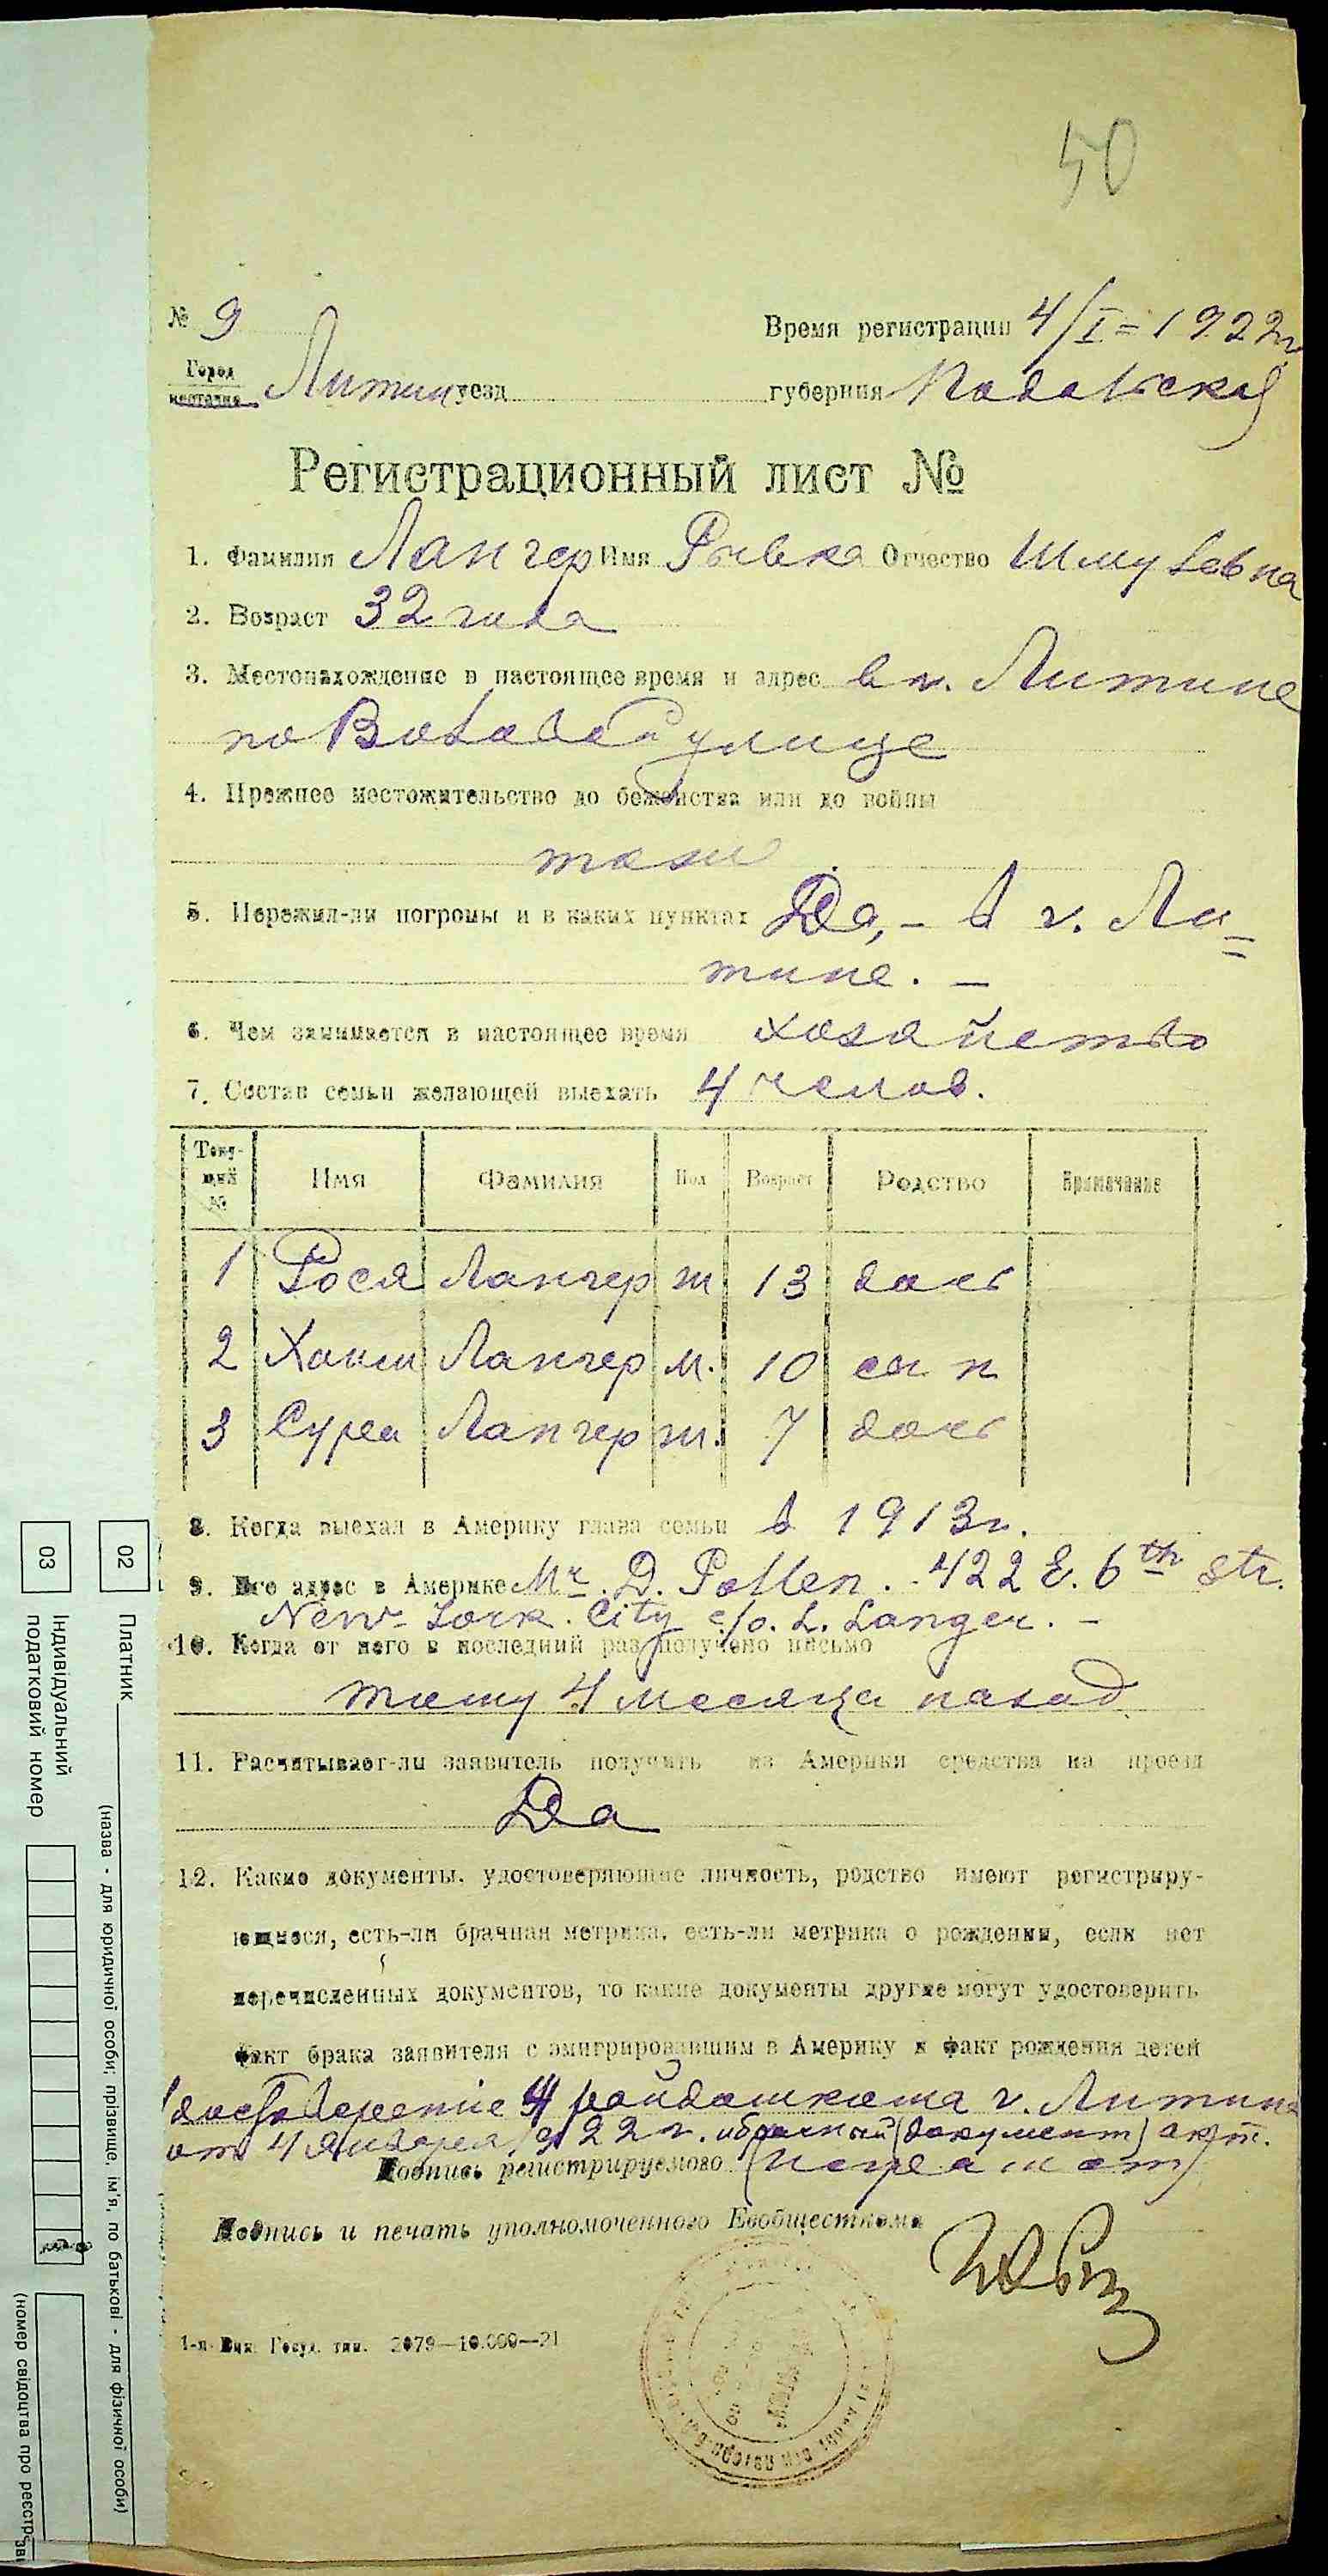 50
№ 9 Время регистрации 4/I = 1922 г.
Город
местечко Литин уезд губерния Подольской
Регистрационный лист №
1. Фамилия Лангер Имя Рывка Отчество Шмулевна
2. Возраст 32 года
3. Местонахождение в настоящее время и адрес в г. Литине
по улице
4. Прежнее местожительство до беженства или до войны
5. Пережил-ли погромы и в каких пунктах Да, – в г. Ли=
тине. –
6. Чем занимается в настоящее время хозяйство
7. Состав семьи желающей выехать 4 челов.
Теку-
щий
№ Имя Фамилия Пол Возраст Родство Примечание
1 Рося Лангер ж 13 дочь
2 Лангер м. 10 сын
3 Сура Лангер ж. 7 дочь
8. Когда выехал в Америку глава семьи в 1913 г.
9. Его адрес в Америке Mr. D. Pollen. 422 E. 6th str.
New-York. City c/o. L. Langer. –
10. Когда от него в последний раз получено письмо
тому 4 месяца назад
11. Расчитывает-ли заявитель получить из Америки средства на проезд
Да
12. Какие документы, удостоверяющие личность, родство имеют регистриру-
ющиеся, есть-ли брачная метрика, есть-ли метрика о рождении, если нет
перечисленных документов, то какие документы другие могут удостоверить
факт брака заявителя с эмигрировавшим в Америку и факт рождения детей
г. Литина
от 4 января 1922 г. и брачный (документ) акт.
Подпись регистрируемого (неграмот)
Подпись и печать уполномоченного Евобщесткома
1-я Вин. Госуд. тип. 2079—10.000—21
02 Платник
(назва - для юридичної особи; прізвище, ім'я, по батькові - для фізичної особи)
03 Індивідуальний
податковий номер
(номер свідоцтва про реєстр